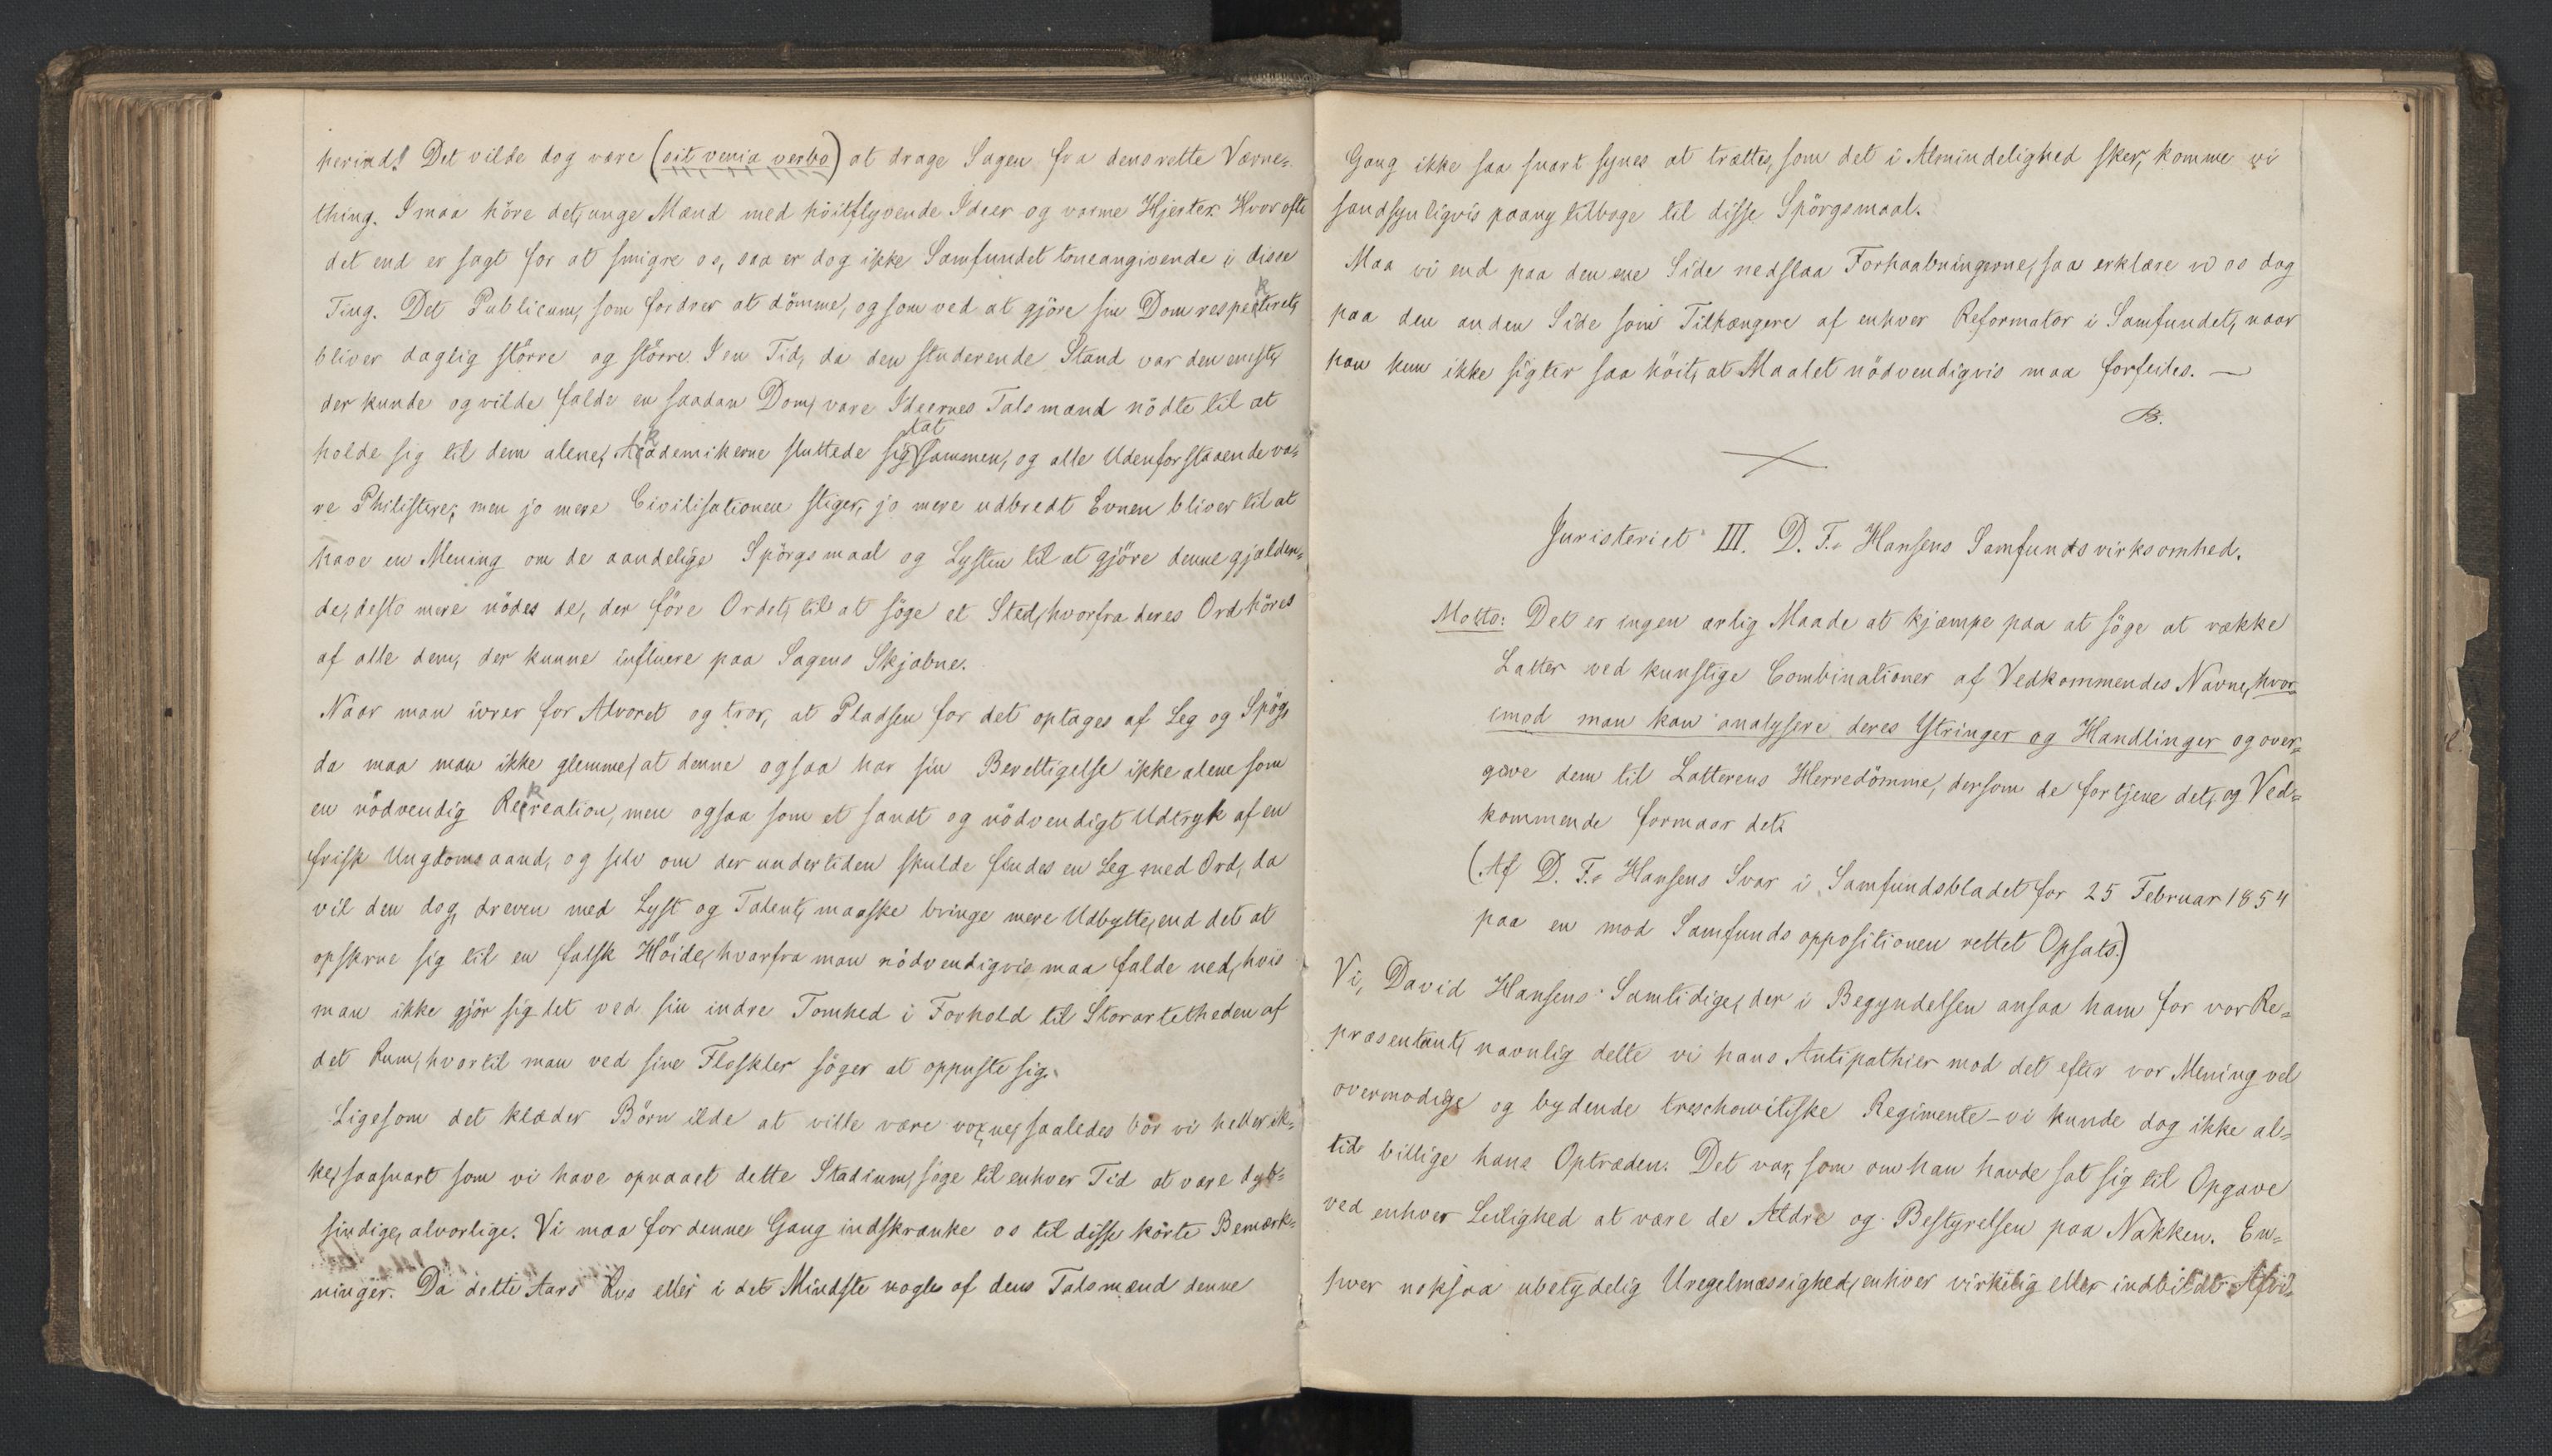 herind! Det vilde dog være (sit venia verbo) at drage Sagen fra dens rette Værne-
thing. I maa höre det, unge Mænd med höitflyvende Ideer og varme Hjerter. Hvor ofte
det end er sagt for at smigre os, saa er dog ikke Samfundet toneangivende i disse
Ting. Det Publicum, som fordrer at dömme, og som ved at gjöre sin Dom respekteret,
bliver daglig större og större. I en Tid, da den studerende Stand var den eneste,
der kunde og vilde fælde en saadan Dom, vare Ideernes Talsmænd nödte til at
holde sig til dem alene, Akademikerne sluttede sig tæt sammen, og alle Udenforstaaende va-
re Philistere; men jo mere Civilisationen stiger, jo mere udbredt Evnen bliver til at
have en Mening om de aandelige Spörgsmaal og Lysten til at gjöre denne gjælden-
de, desto mere nödes de, der före Ordet, til at söge et Sted, hvorfra deres Ord höres
af alle dem, der kunne influere paa Sagens Skjæbne.
Naar man ivrer for Alvoret og tror, at Pladsen for det optages af Leg og Spög,
da maa man ikke glemme, at denne ogsaa har sin Berettigelse ikke alene som
en nödvendig Rekreation, men ogsaa som et sandt og nödvendigt Udtryk af en
frisk Ungdomsaand, og selv om der undertiden skulde findes en Leg med Ord, da
vil den dog, dreven med Lyst og Talent, maaske bringe mere Udbytte, end det at
opskrue sig til en falsk Höide, hvorfra man nödvendigvis maa falde ned, hvis
man ikke gjör sig let ved sin indre Tomhed i Forhold til Storartetheden af
det Rum, hvortil man ved sine Floskler söger at oppuste sig.
Ligesom det klæder Börn ilde at ville være voxne, saaledes bör vi heller ik-
ke, saasnart som vi have opnaaet dette Stadium, söge til enhver Tid at være dyb-
sindige, alvorlige. Vi maa for denne Gang indskrænke os til disse korte Bemærk-
ninger. Da dette Aars Rus eller i det Mindste nogle af dens Talsmænd denne
Gang ikke saa snart synes at trættes, som det i Almindelighed sker, komme vi
sandsynligvis paany tilbage til disse Spörgsmaal.
Maa vi end paa den ene Side nedslaa Forhaabningerne, saa erklære vi os dog
paa den anden Side som Tilhængere af enhver Reformator i Samfundet, naar
han kun ikke sigter saa höit, at Maalet nödvendigvis maa forfeiles. —
B.
Juristeriet III. D. F. Hansens Samfundsvirksomhed.
Motto: Det er ingen ærlig Maade at kjæmpe paa at söge at vække
Latter ved kunstige Combinationer af Vedkommendes Navne, hvor-
imod man kan analysere deres Ytringer og Handlinger og over-
give dem til Latterens Herredömme, dersom de fortjene det, og Ved-
kommende formaar det.
(Af D. F. Hansens Svar i Samfundsbladet for 25 Februar 1854
paa en mod Samfundsoppositionen rettet Opsats.)
Vi, David Hansens Samtidige, der i Begyndelsen ansaa ham for vor Re-
præsentant, navnlig delte vi hans Antipathier mod det efter vor Mening vel
overmodige og bydende treschowitiske Regimente – vi kunde dog ikke al-
tid billige hans Optræden. Det var, som om han havde sat sig til Opgave
ved enhver Leilighed at være de Ældre og Bestyrelsen paa Nakken. En-
hver noksaa ubetydelig Uregelmæssighed, enhver virkelig eller indbildt Afvi-